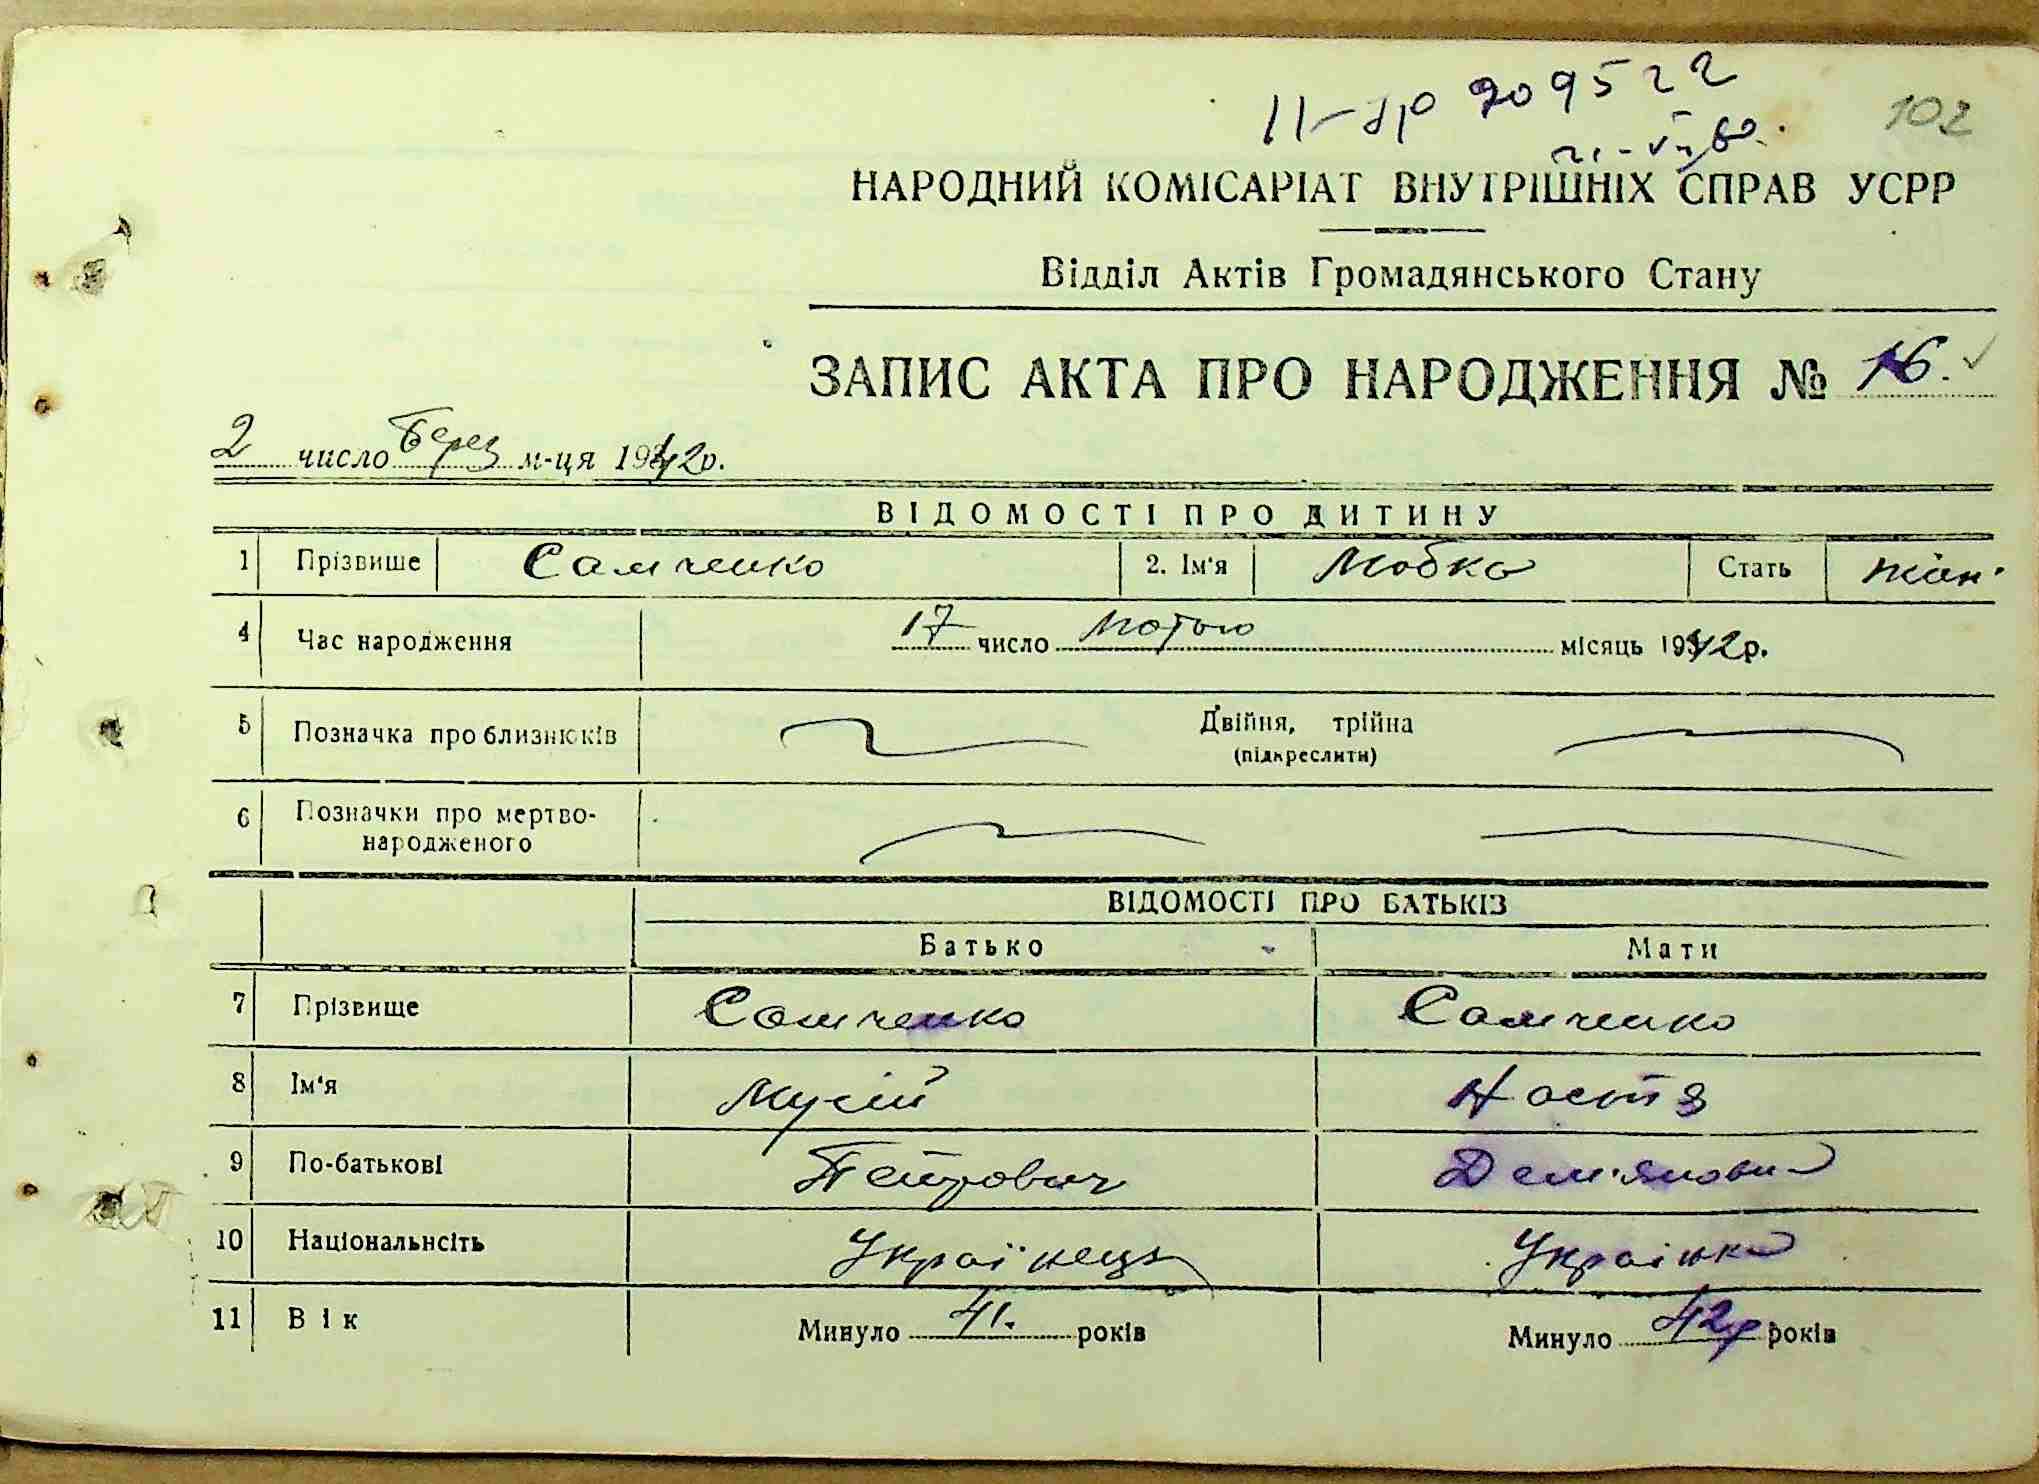 II-др 209522
102
НАРОДНИЙ КОМІСАРІАТ ВНУТРІШНІХ СПРАВ УСРР
Відділ Актів Громадянського Стану
ЗАПИС АКТА ПРО НАРОДЖЕННЯ № 16.
2 число Берез м-ця 1942р.
ВІДОМОСТІ ПРО ДИТИНУ
1 Прізвише Самченко 2. Ім'я Любка Стать жін.
4 Час народження 17 число Лютого місяць 1942р.
5 Позначка про близнюків Двійня, трійна
(підкреслити)
6 Позначки про мертво-
народженого
ВІДОМОСТІ ПРО БАТЬКІВ
Батько Мати
7 Прізвище Самченко Самченко
8 Ім'я Мусій Настя
9 По-батькові Петрович Дем'янови
10 Національнсіть Українець Українка
11 Вік Минуло 41. років Минуло 42р років